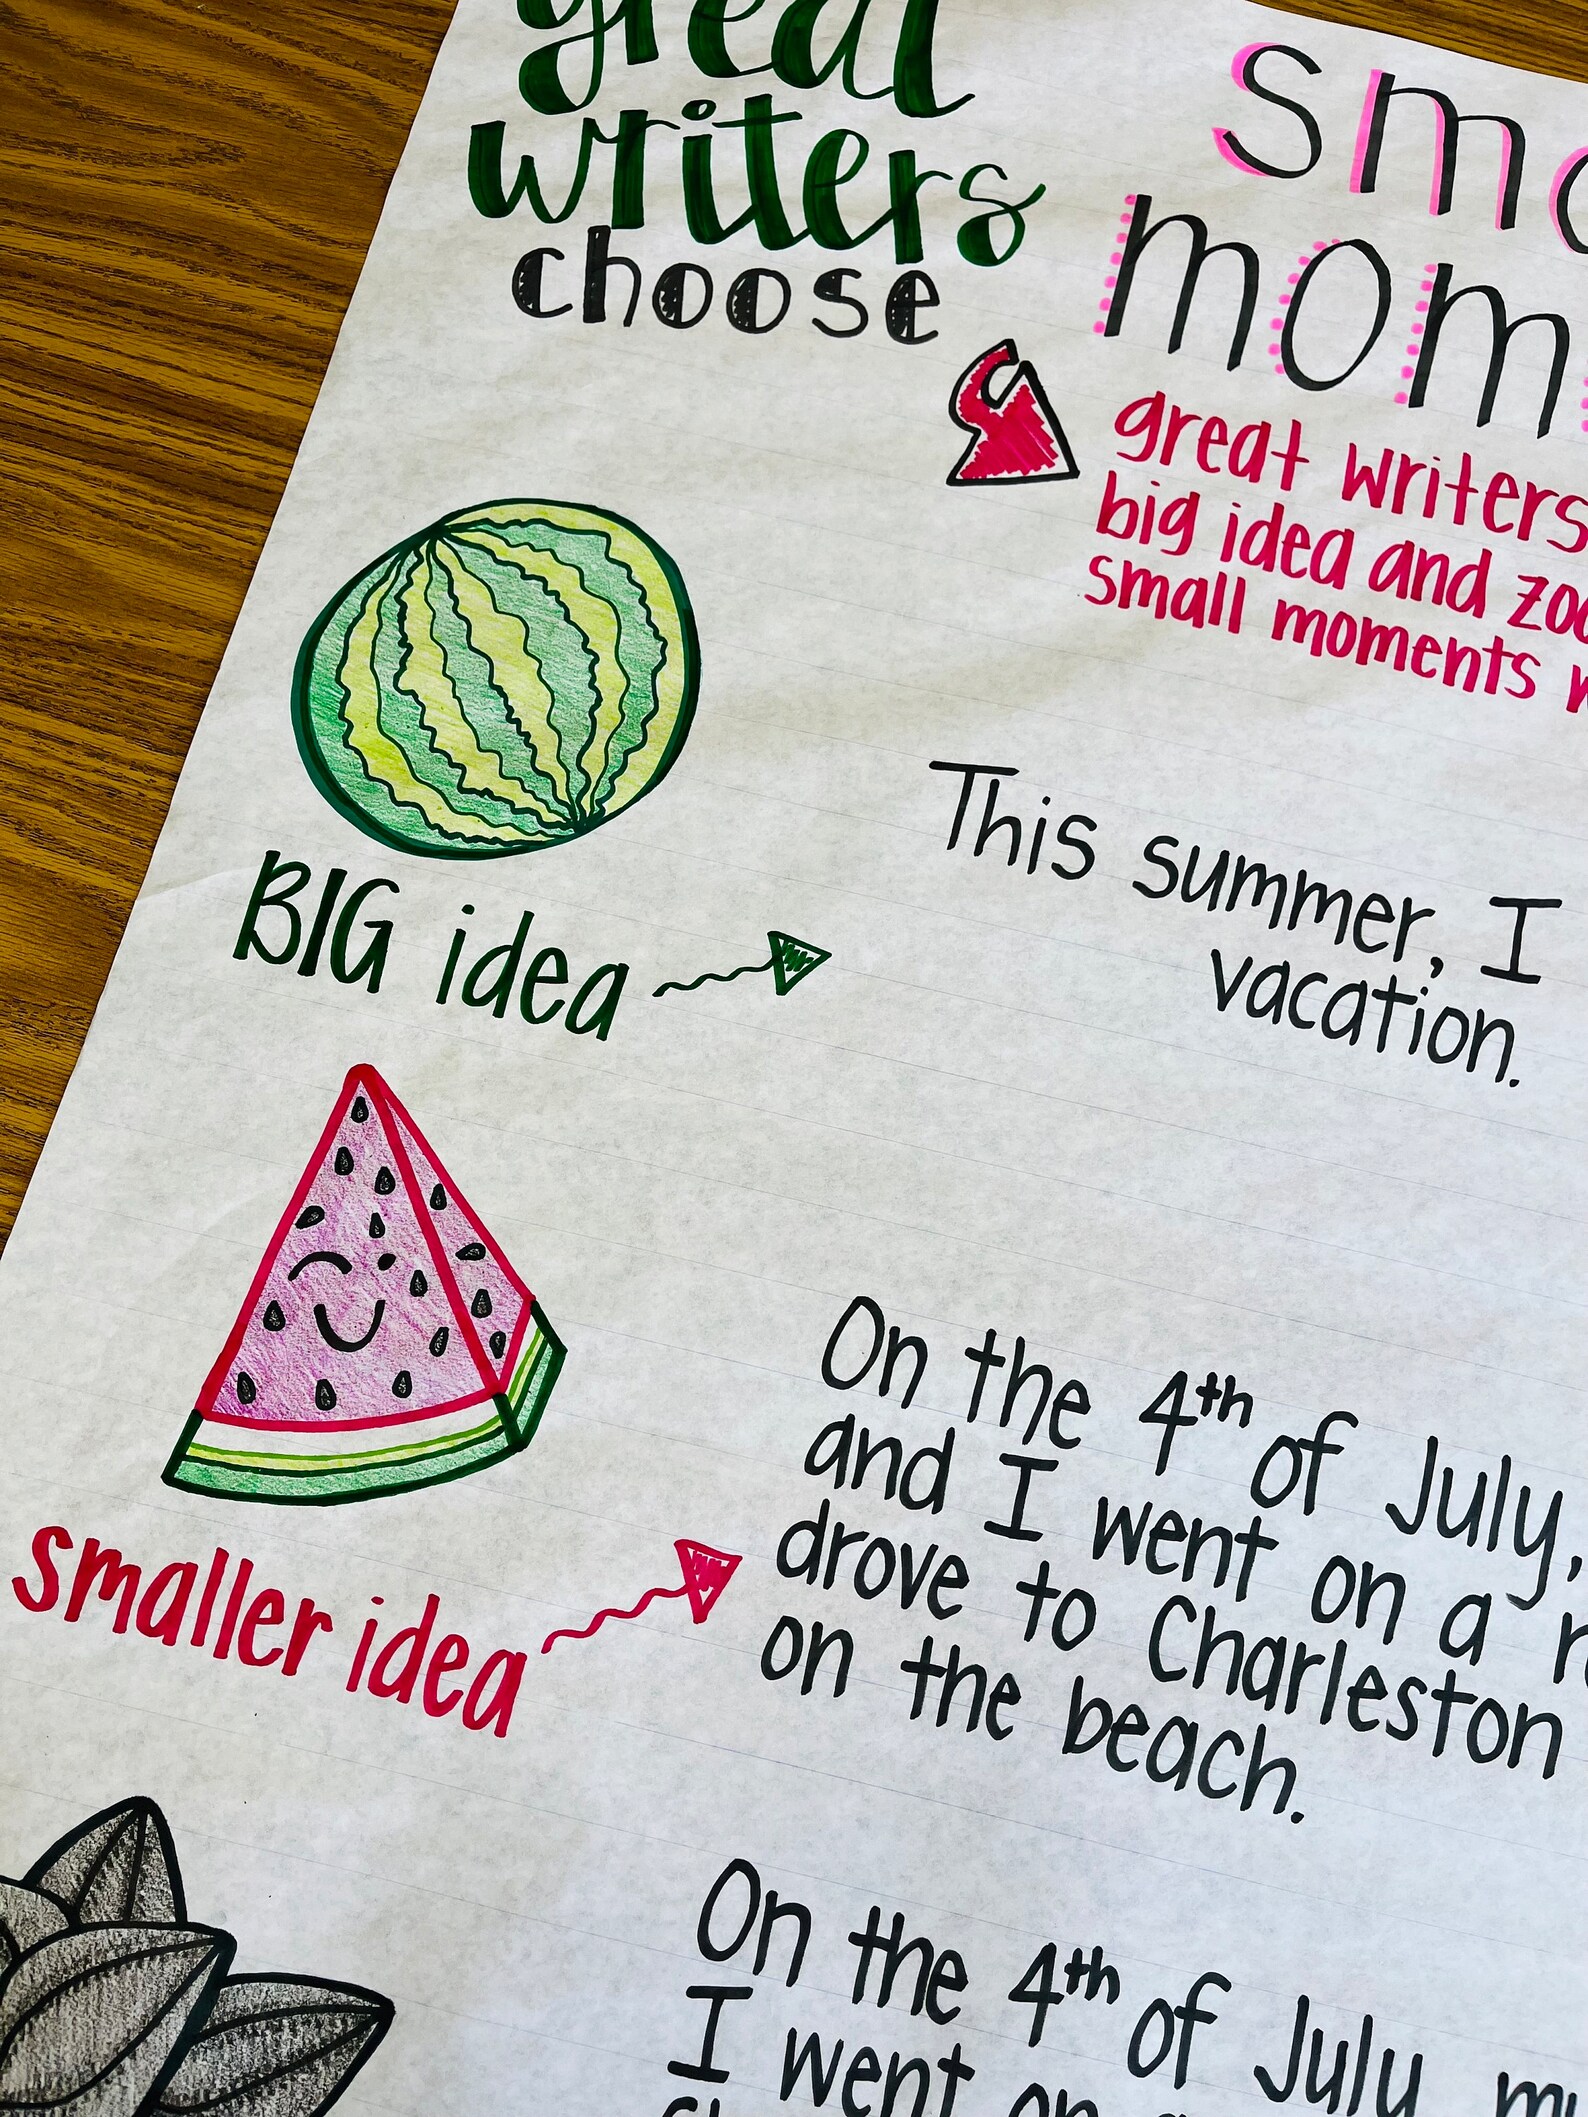 great
writers
choose
mom
great writers
big idea and
small moments
This summer, I
vacation.
BIG idea
On the 4th of July,
and I went on a
drove to Charleston
on the beach.
smaller idea
On the 4th of July
I went